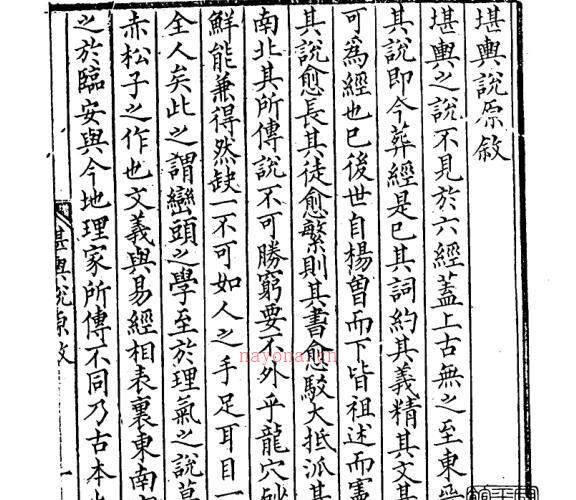 堪輿說原敘
堪輿之說不見於六經蓋上古無之至東
其說即今葬經是已其詞約其義精其文
可爲經也已後世自楊曾而下皆祖述而
其說愈長其徒愈繁則其書愈駁大抵派
南北其所傳說不可勝窮要不外乎龍穴砂
鮮能兼得然缺一不可如人之手足耳目一
全人矣此之謂巒頭之學至於理氣之說
赤松子之作也文義與易經相表裏東南
之於臨安與今地理家所傳不同乃古本
堪輿說原敘
nayona.cn